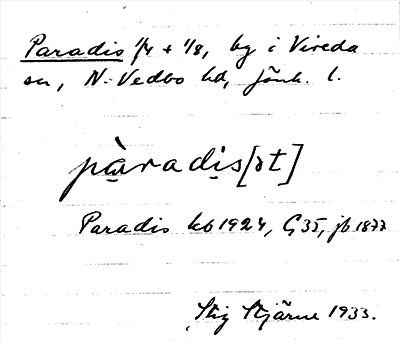 Paradis 1/4 + 1/8, by i Vireda
sn, N. Vedbo hd, Jönk. l.
pàradis[ət]
Paradis kb 1924, G 35, jb 1877
Stig Stjärne 1933.